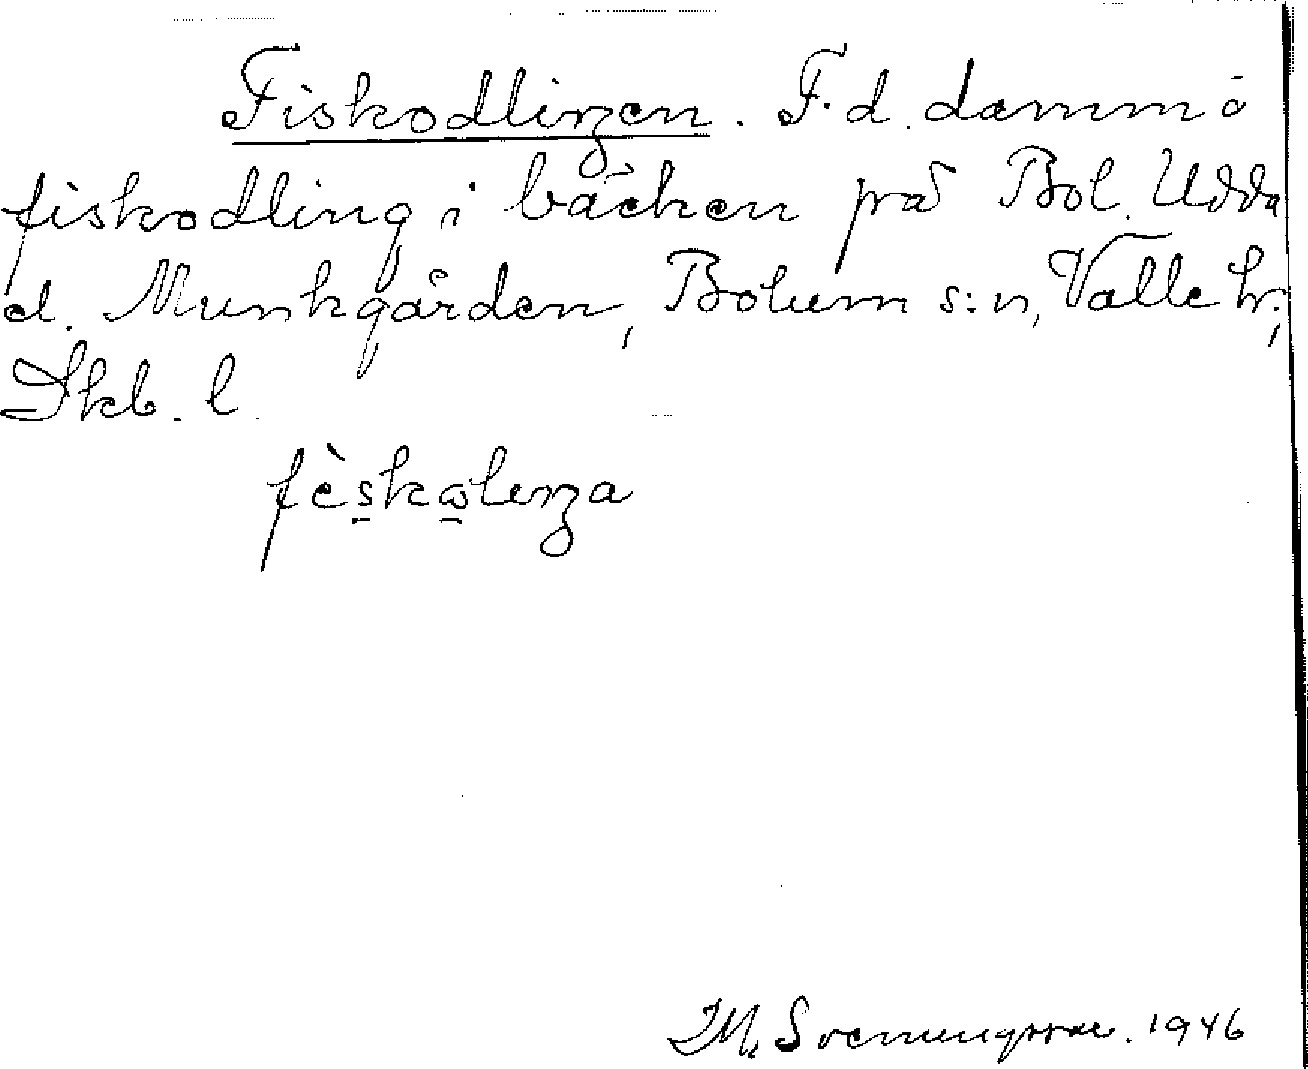 Fiskodlingen. F.d. damm o
fiskodling i bäcken på Bol. Udda
el. Munkgården, Bolum s:n, Valle hr,
Skb. l.
fèskɷleŋa
Svenungsson. 1946